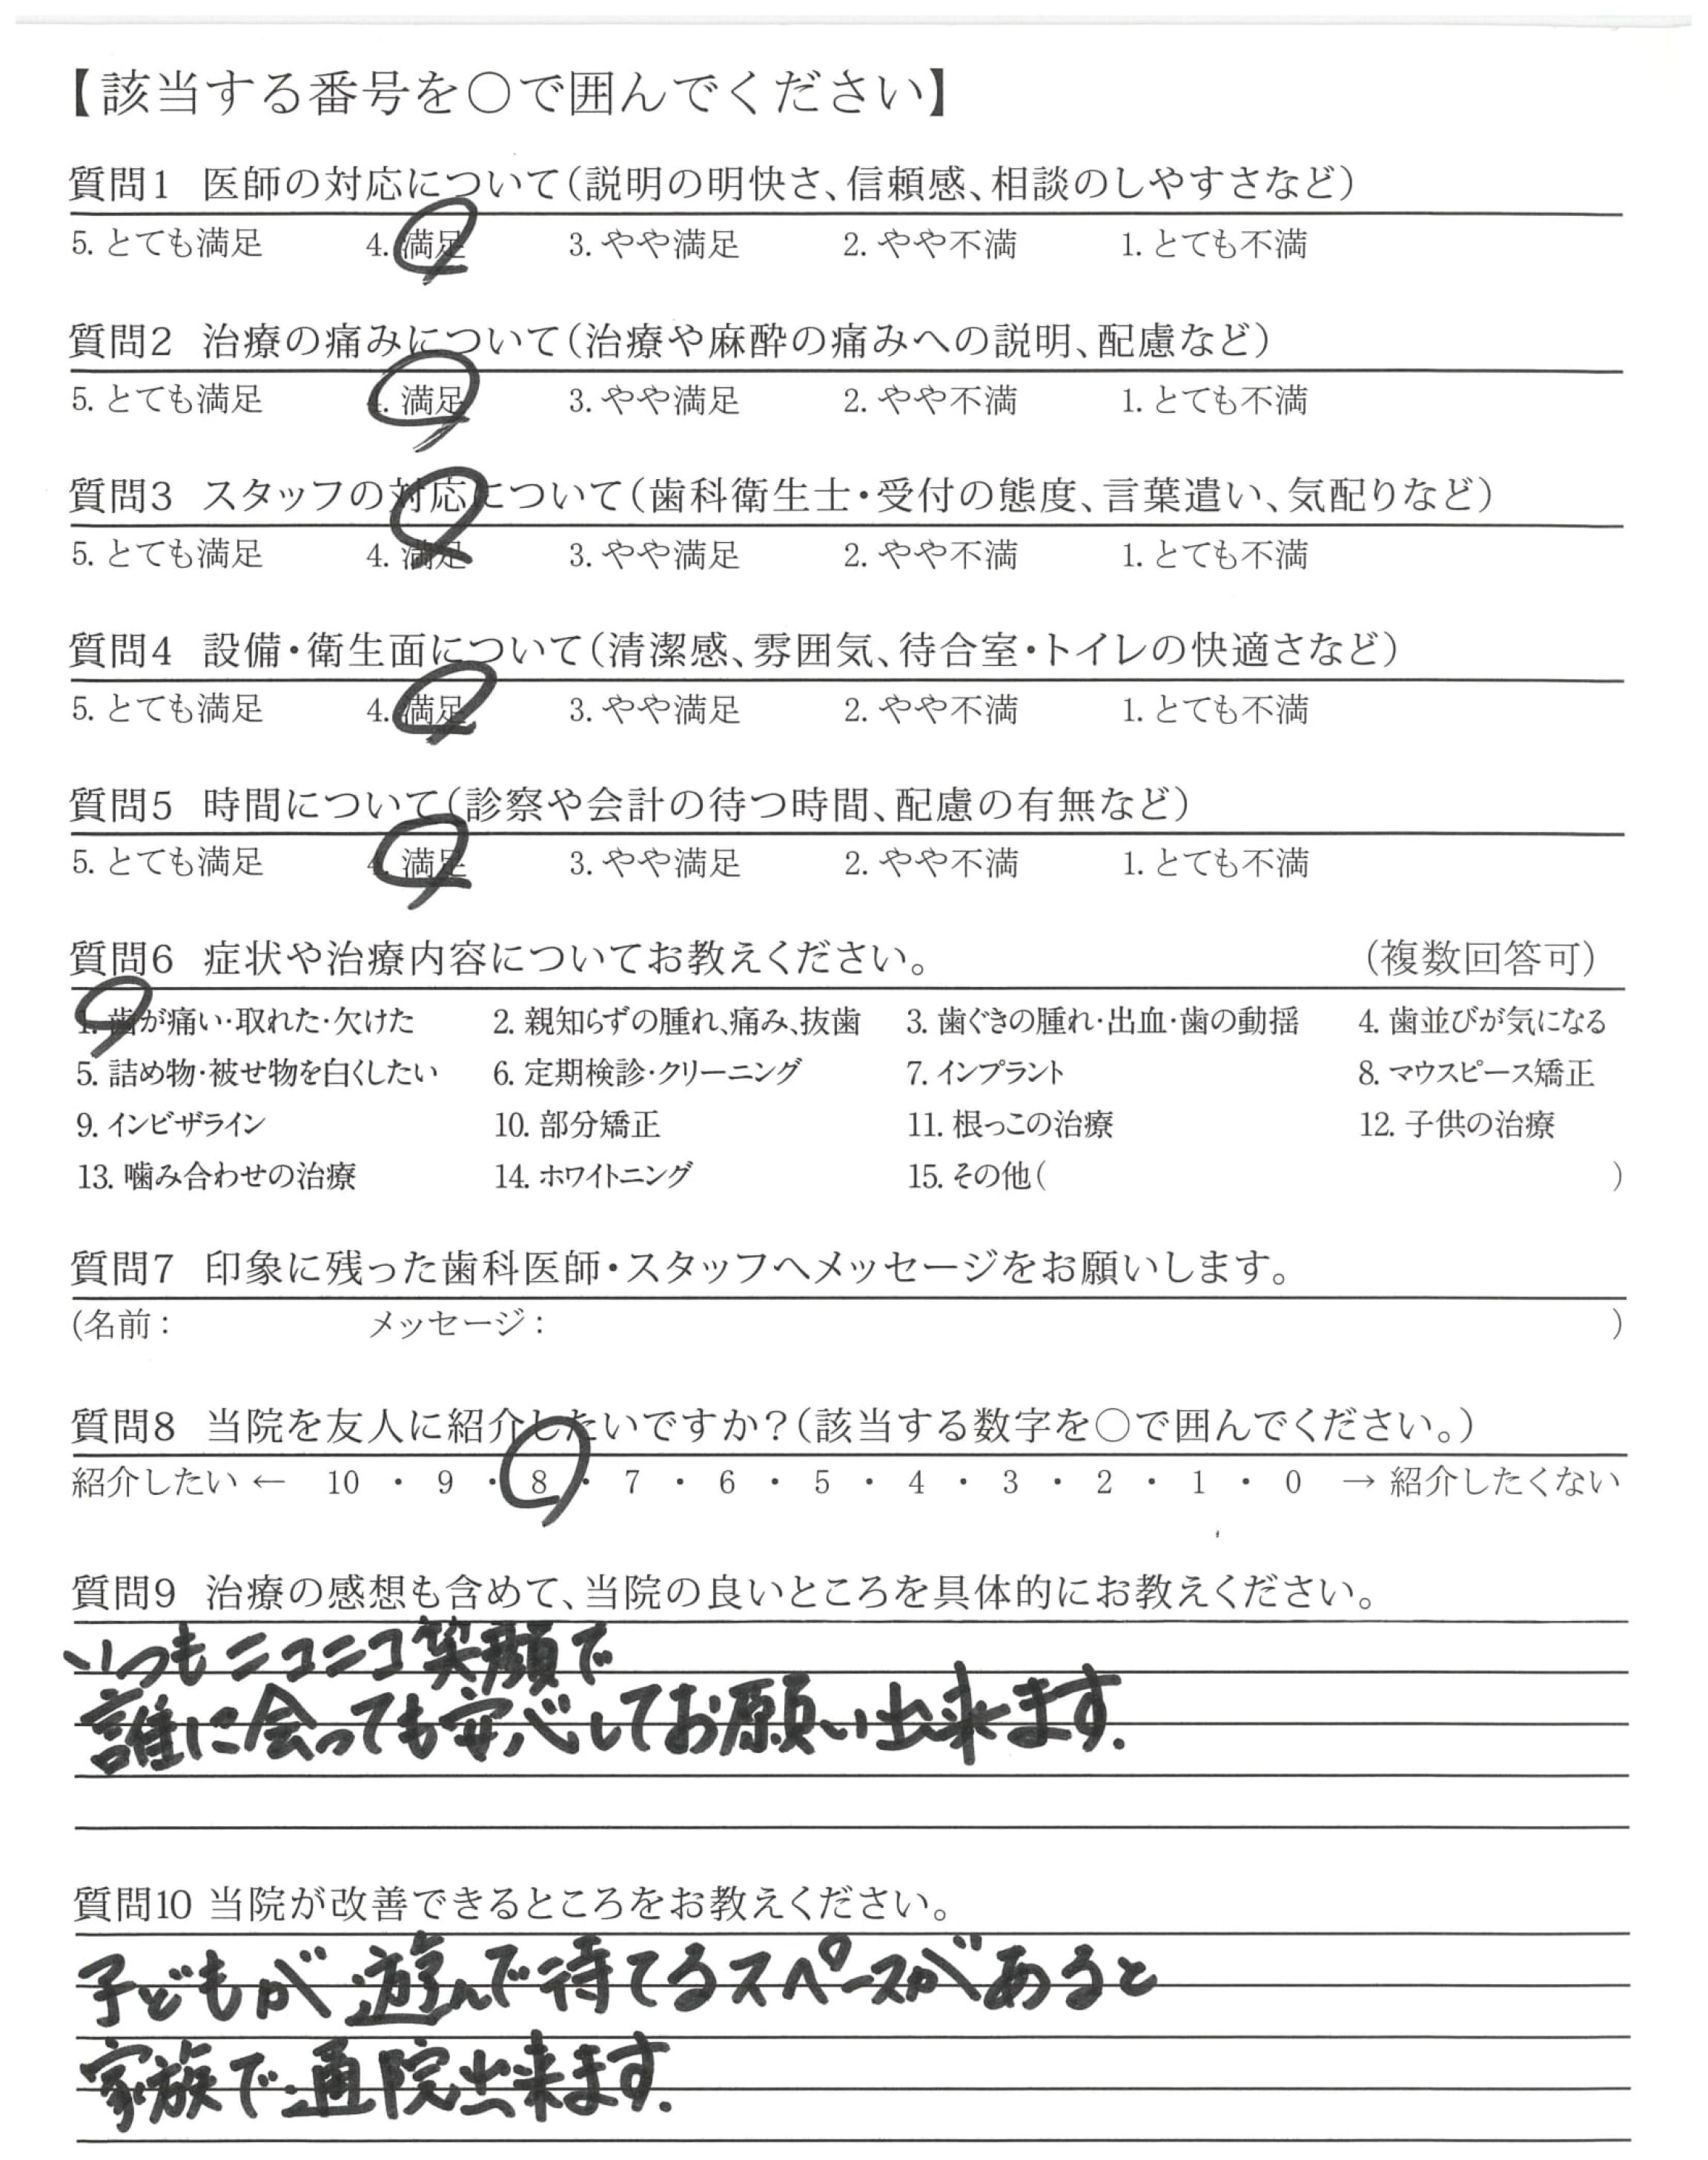 【該当する番号を○で囲んでください】
質問1 医師の対応について(説明の明快さ、信頼感、相談のしやすさなど)
5. とても満足 4. 満足 3. やや満足 2. やや不満 1. とても不満
質問2 治療の痛みについて(治療や麻酔の痛みへの説明、配慮など)
5. とても満足 4. 満足 3. やや満足 2. やや不満 1. とても不満
質問3 スタッフの対応について(歯科衛生士・受付の態度、言葉遣い、気配りなど)
5. とても満足 4. 満足 3. やや満足 2. やや不満 1. とても不満
質問4 設備・衛生面について(清潔感、雰囲気、待合室・トイレの快適さなど)
5. とても満足 4. 満足 3. やや満足 2. やや不満 1. とても不満
質問5 時間について(診察や会計の待つ時間、配慮の有無など)
5. とても満足 4. 満足 3. やや満足 2. やや不満 1. とても不満
質問6 症状や治療内容についてお教えください。 (複数回答可)
1. 歯が痛い・取れた・欠けた 2. 親知らずの腫れ、痛み、抜歯 3. 歯ぐきの腫れ・出血・歯の動揺 4. 歯並びが気になる
5. 詰め物・被せ物を白くしたい 6. 定期検診・クリーニング 7. インプラント 8. マウスピース矯正
9. インビザライン 10. 部分矯正 11. 根っこの治療 12. 子供の治療
13. 噛み合わせの治療 14. ホワイトニング 15. その他( )
質問7 印象に残った歯科医師・スタッフへメッセージをお願いします。
(名前: メッセージ: )
質問8 当院を友人に紹介したいですか?(該当する数字を○で囲んでください。)
紹介したい ← 10 ・ 9 ・ 8 ・ 7 ・ 6 ・ 5 ・ 4 ・ 3 ・ 2 ・ 1 ・ 0 → 紹介したくない
質問9 治療の感想も含めて、当院の良いところを具体的にお教えください。
いつもニコニコ笑顔で
誰に会っても安心してお願い出来ます.
質問10 当院が改善できるところをお教えください。
子どもが遊んで待てるスペースがあると
家族で通院出来ます.